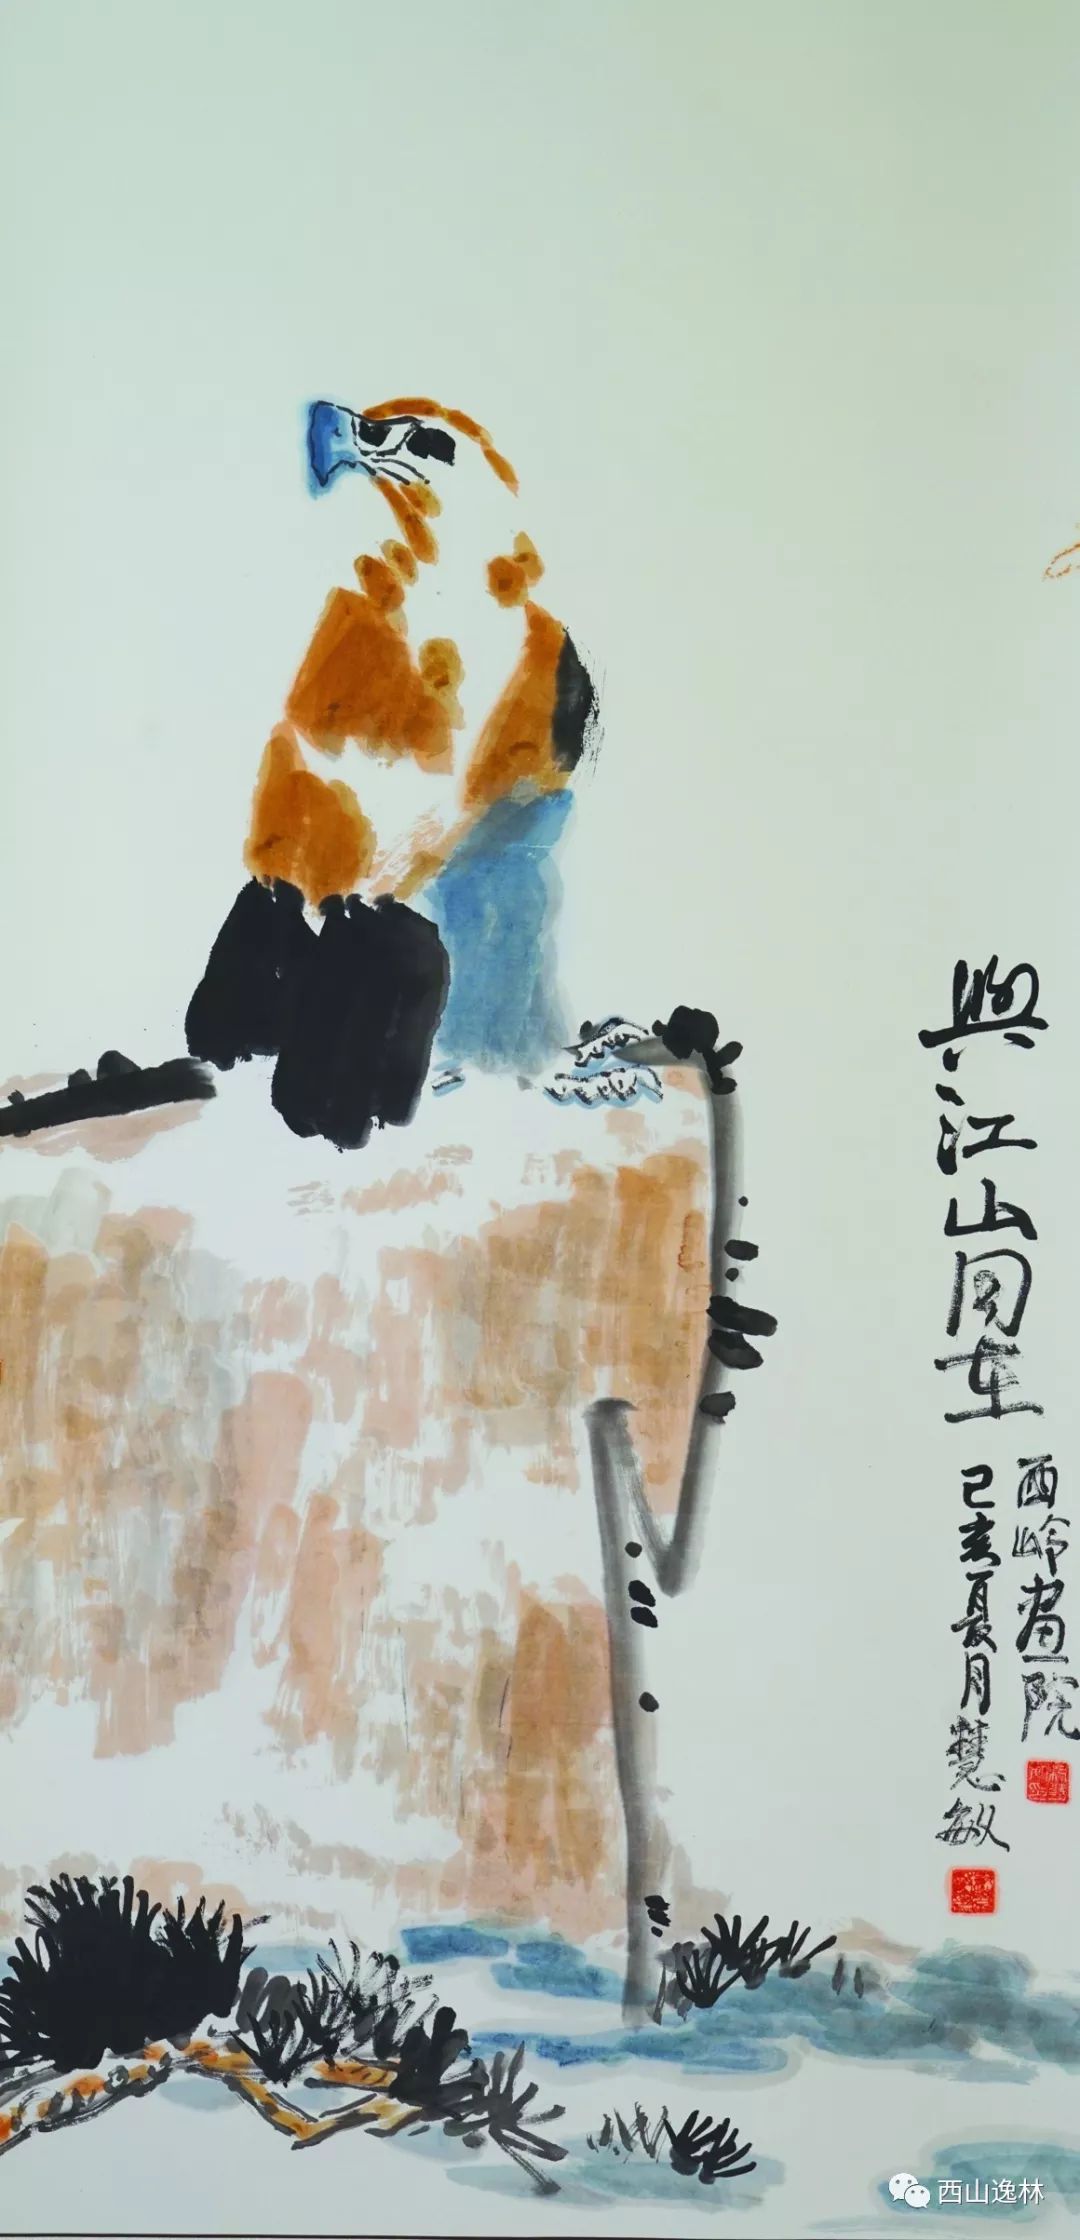 與江山同在
西岭畫院
已亥夏月慧敏
西山逸林